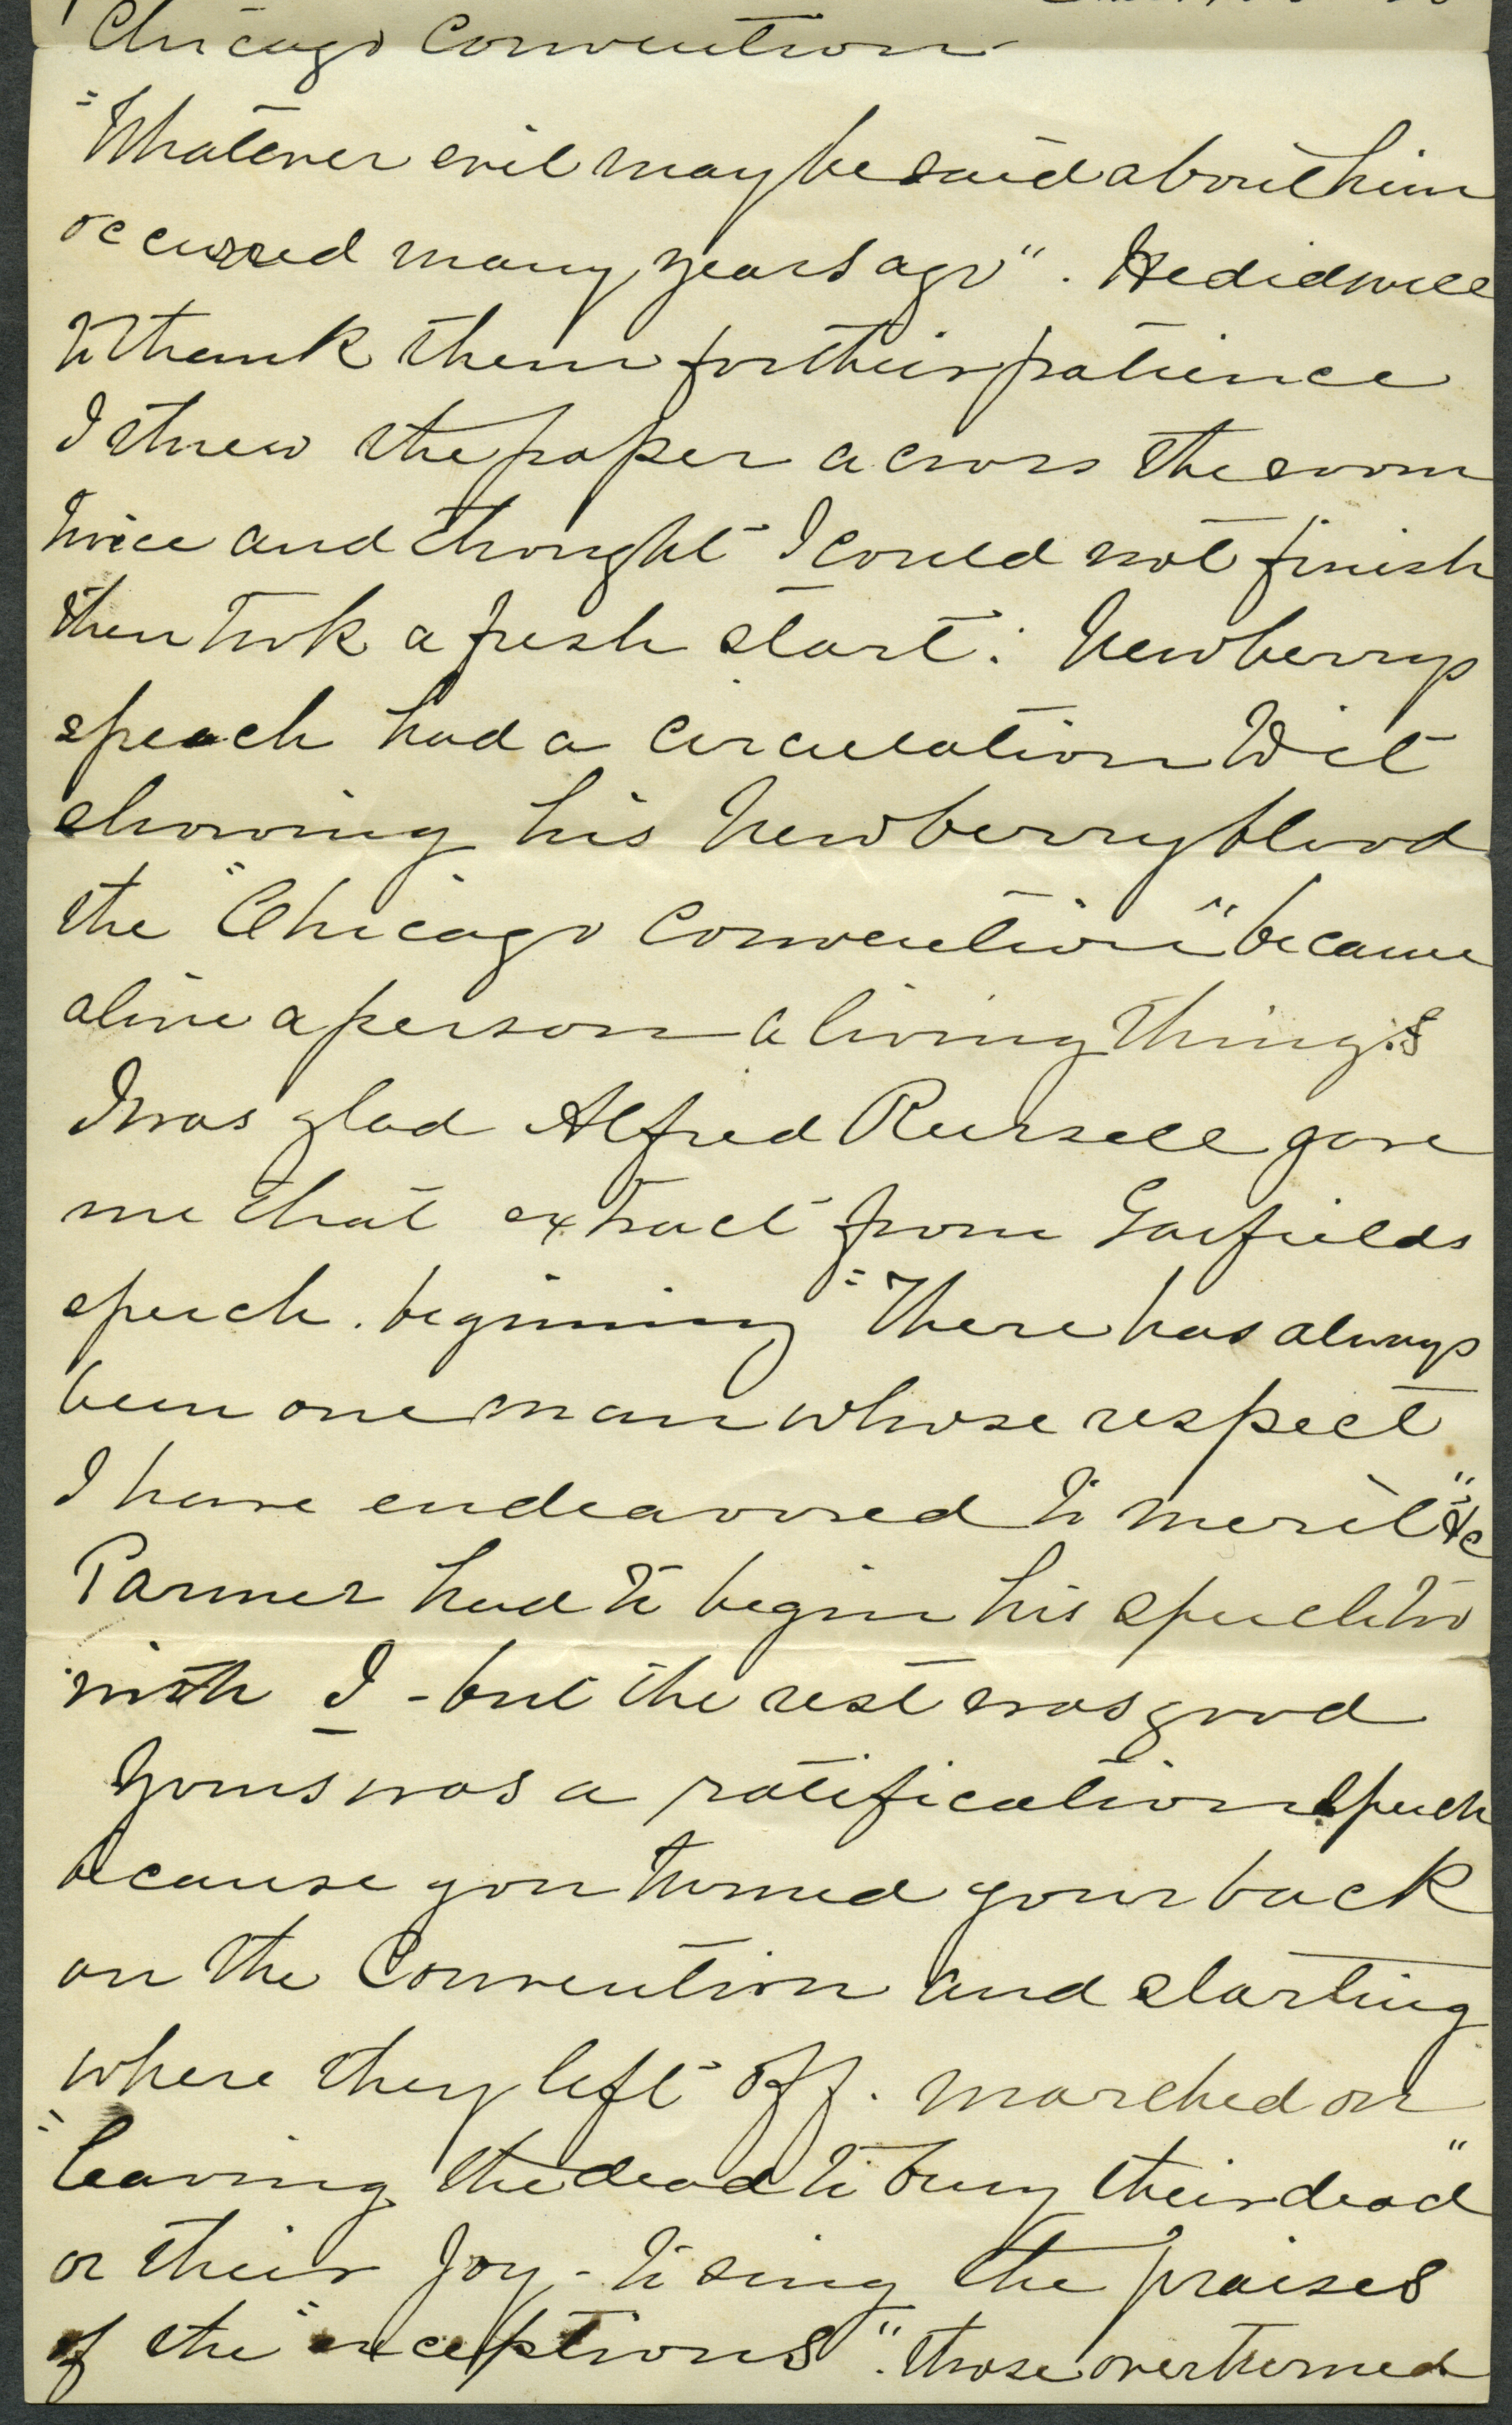 Chicago Convention
"Whatever evil may be said about him
occurred many years ago". He did well
to thank them for their patience
I threw the paper across the room
twice and thought I could not finish
then took a fresh start: Newberrys
speach had a circulation Wit
showing his Newberry blood
the "Chicago Convention" became
alive a person a living thing.
I was glad Alfred Russell gave
me that extract from Garfields
speech. beginning "There has always
been one man whose respect
I have endeavored to merit" &c
Parmer had to begin his speech too
with I - but the rest was good
Yours was a ratification speech
because you turned your back
on the Convention and starting
where they left off. marched on
"leaving the dead to bury their dead"
or their Joy - to sing the praises
of the "exceptions". those overturned